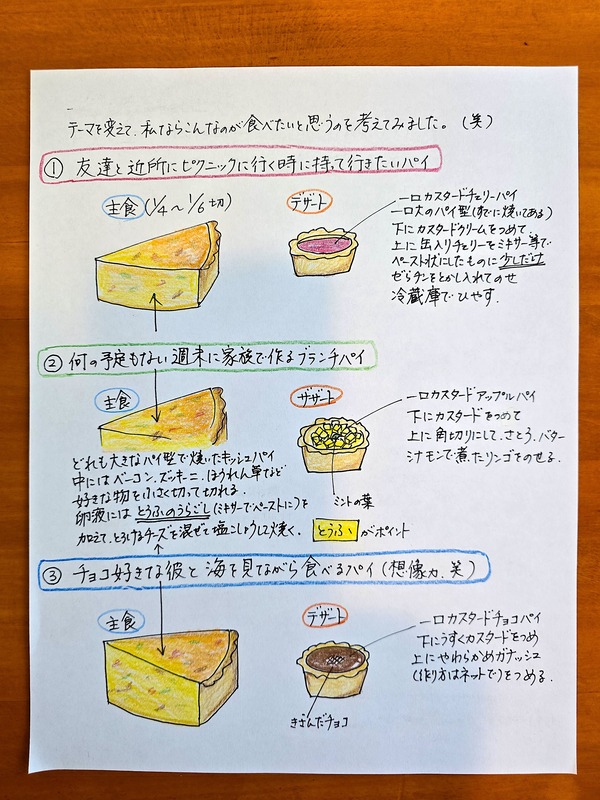 テーマを変えて、私ならこんなのが食べたいと思うのを考えてみました。(笑)
① 友達と近所にピクニックに行く時に持って行きたいパイ
主食 (1/4〜1/6切)
デザート
一口カスタードチェリーパイ
一口大のパイ型(すでに焼いてある)
下にカスタードクリームをつめて、
上に缶入りチェリーをミキサー等で
ペースト状にしたものに少しだけ
ゼラチンをとかし入れてのせ
冷蔵庫でひやす.
② 何の予定もない週末に家族で作るブランチパイ
主食
デザート
一口カスタードアップルパイ
下にカスタードをつめて
上に角切りにして、さとう、バター
シナモンで煮たリンゴをのせる.
ミントの葉
どれも大きなパイ型で焼いたキッシュパイ
中にはベーコン、ズッキーニ、ほうれん草など
好きな物を小さく切って切れる.
卵液にはとうふのうらごし(ミキサーでペーストに)を
加えて、とろけるチーズを混ぜて塩こしょうして焼く.
とうふ がポイント
③ チョコ好きな彼と海を見ながら食べるパイ (想像力.笑)
主食
デザート
一口カスタードチョコパイ
下にうすくカスタードをつめ
上にやわらかめガナッシュ
(作り方はネットで)をつめる.
きざんだチョコ